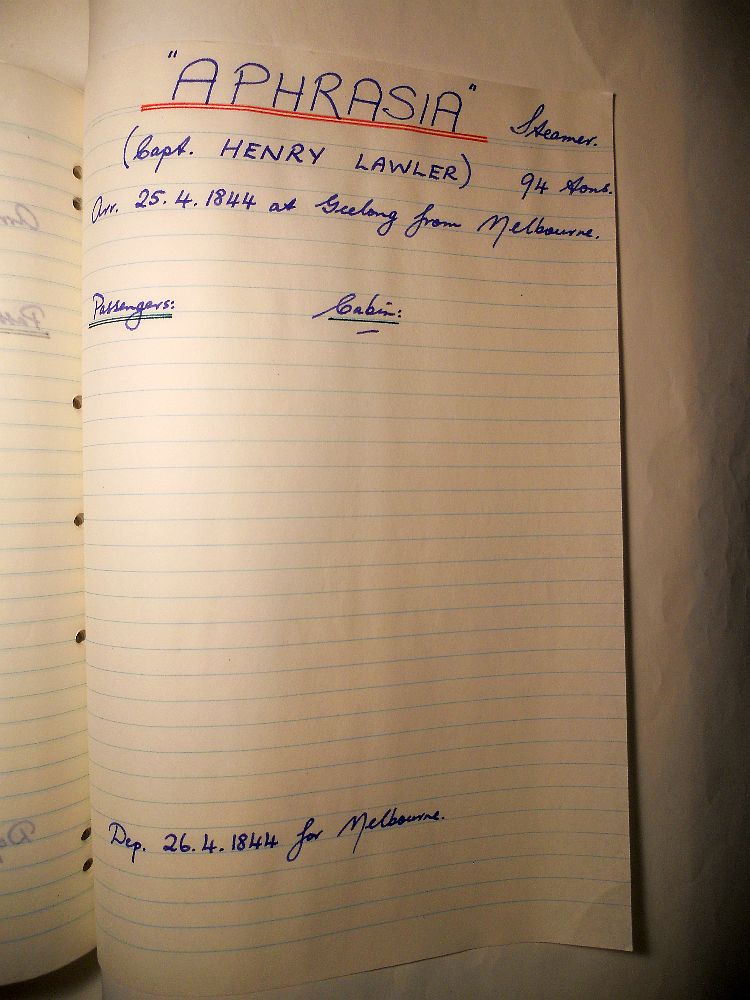 "APHRASIA" Steamer.
(Capt. HENRY LAWLER) 94 tons.
Arr. 25.4.1844 at Geelong from Melbourne.
Passengers: Cabin:
—
Dep. 26.4.1844 for Melbourne.